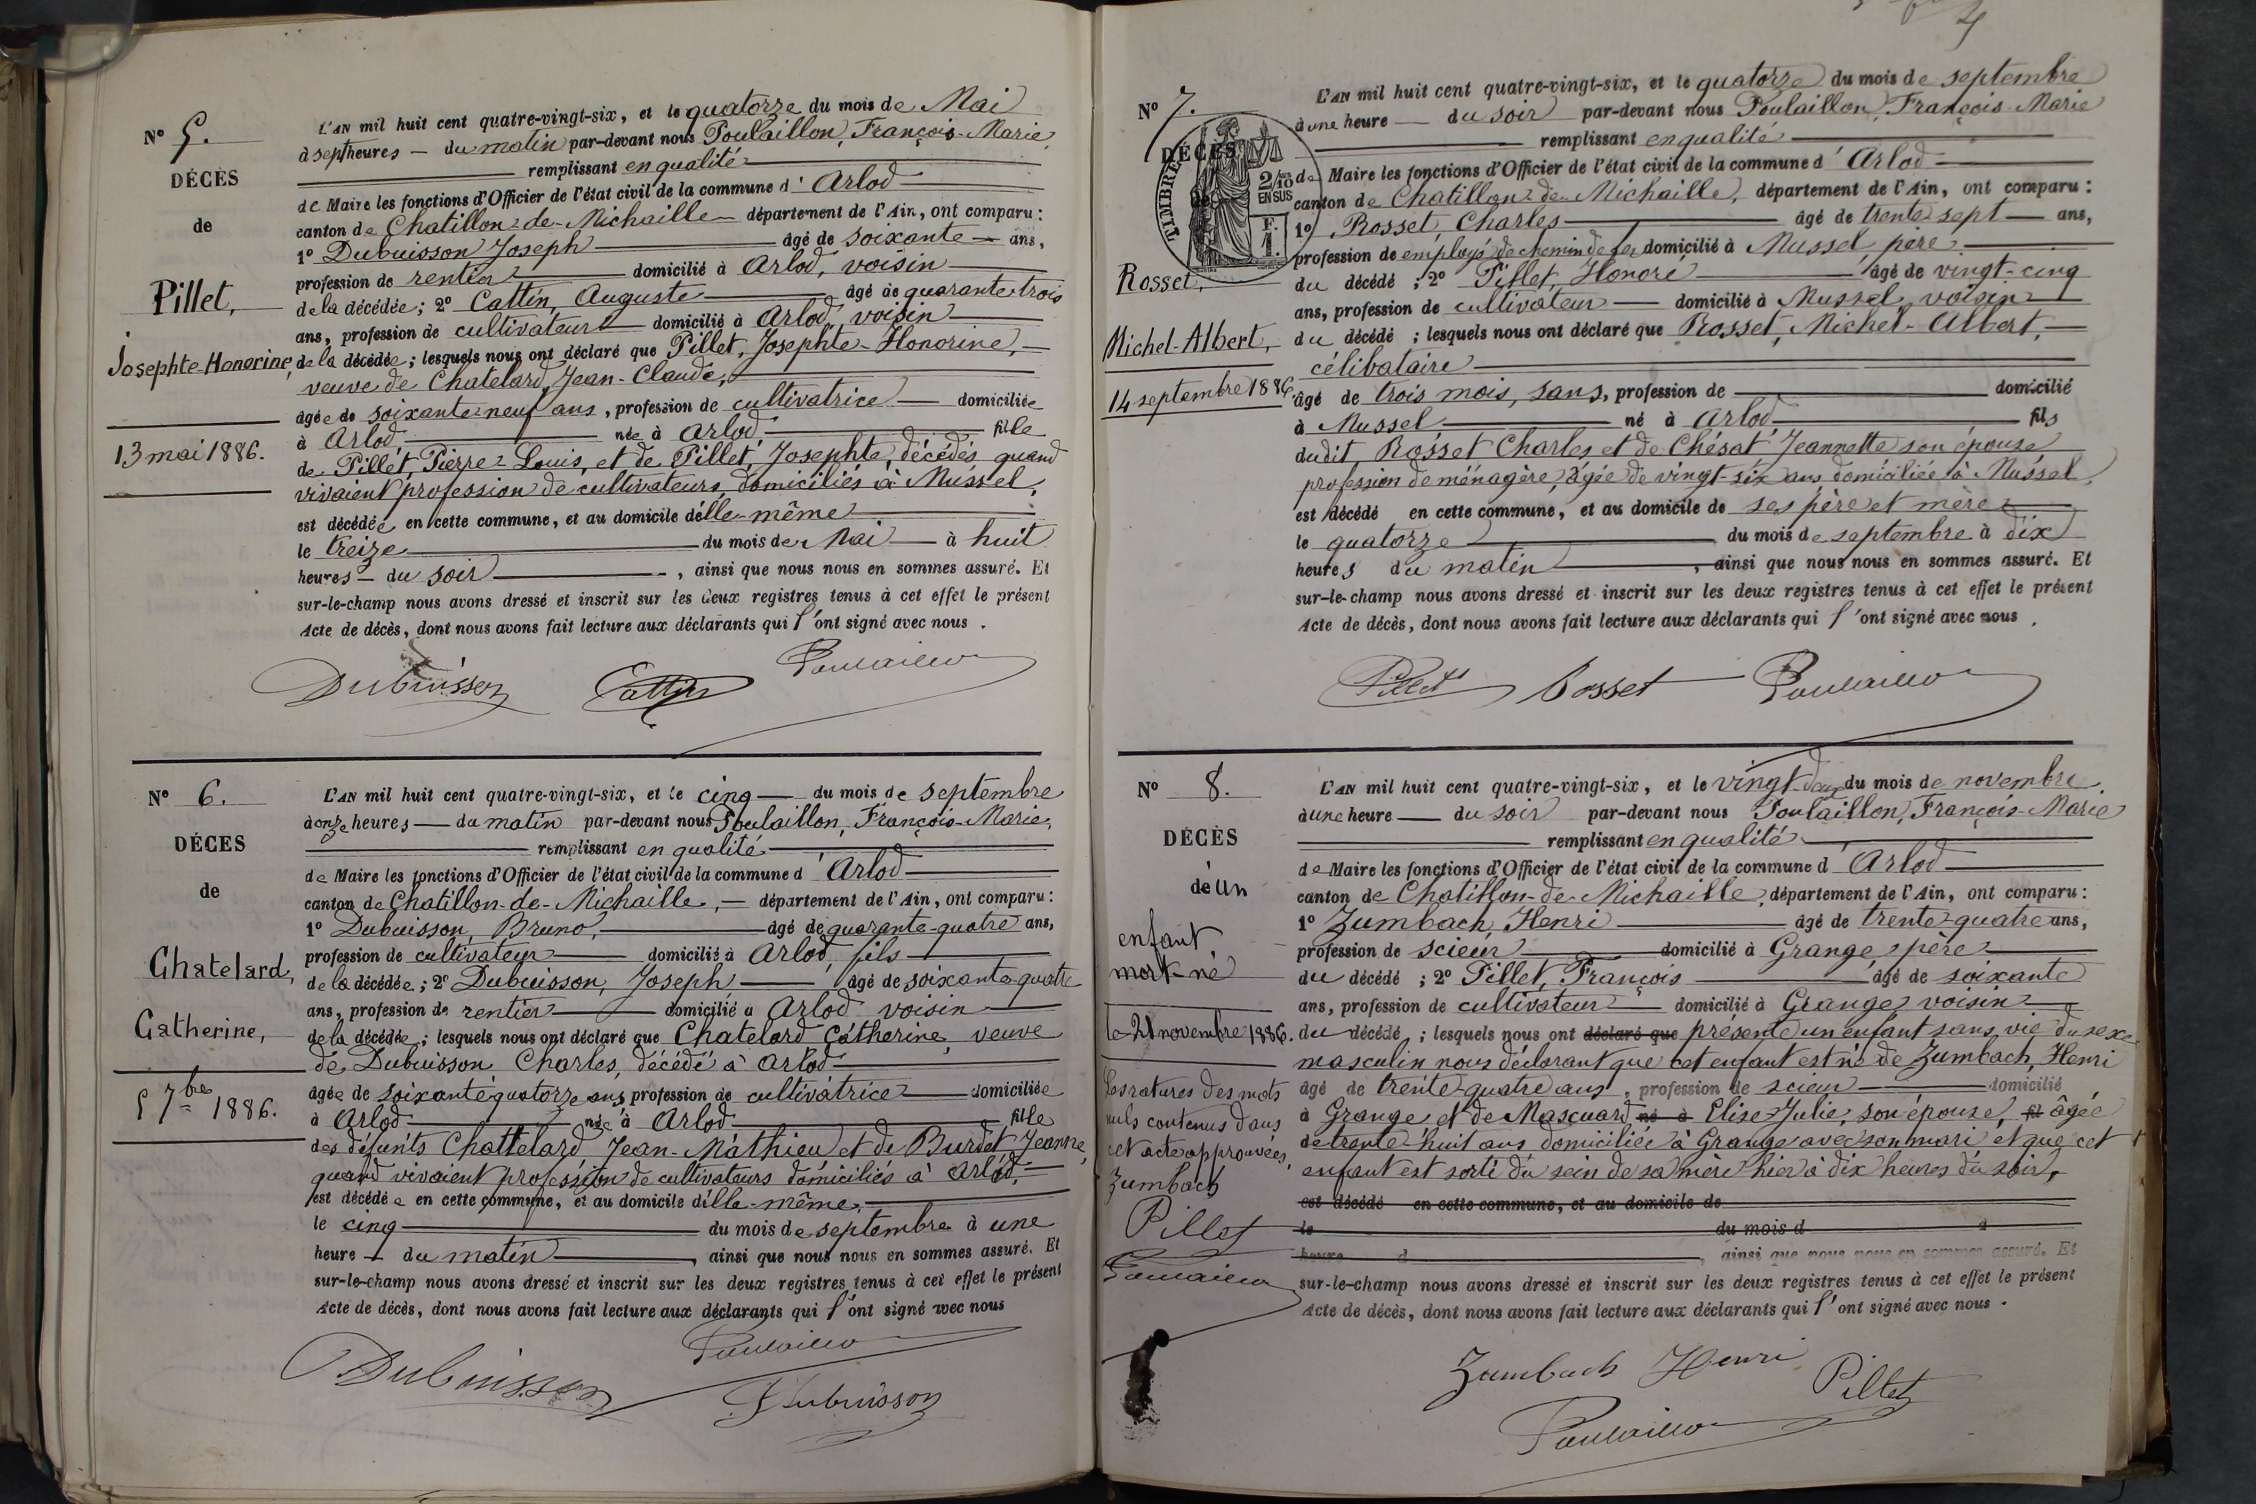 N° 5.
DÉCÈS
de
Pillet,
Josephte-Honorine,
13 mai 1886.
L'AN mil huit cent quatre-vingt-six, et le quatorze du mois de Mai
à sept heures — du matin par-devant nous Poulaillon, François-Marie,
remplissant en qualité
de Maire les fonctions d'Officier de l'état civil de la commune d'Arlod
canton de Chatillon-de-Michaille département de l'Ain, ont comparu :
1° Dubuisson Joseph âgé de soixante ans,
profession de rentier domicilié à Arlod, voisin
de la décédée ; 2° Cattin, Auguste âgé de quarante-trois
ans, profession de cultivateur domicilié à Arlod, voisin
de la décédée ; lesquels nous ont déclaré que Pillet, Josephte-Honorine,
veuve de Chatelard, Jean-Claude,
âgée de soixante-neuf ans, profession de cultivatrice domiciliée
à Arlod née à Arlod fille
de Pillet, Pierre-Louis, et de Pillet, Josephte, décédés quand
vivaient profession de cultivateurs, domiciliés à Mussel,
est décédée en cette commune, et au domicile d'elle-même
le treize du mois de Mai à huit
heures — du soir, ainsi que nous nous en sommes assuré. Et
sur-le-champ nous avons dressé et inscrit sur les deux registres tenus à cet effet le présent
Acte de décès, dont nous avons fait lecture aux déclarants qui l'ont signé avec nous.
Poulaillon
Dubuisson Cattin
N° 6.
DÉCÈS
de
Chatelard,
Catherine,
5 7bre 1886.
L'AN mil huit cent quatre-vingt-six, et le cinq du mois de septembre
à onze heures — du matin par-devant nous Poulaillon, François-Marie,
remplissant en qualité
de Maire les fonctions d'Officier de l'état civil de la commune d'Arlod
canton de Chatillon-de-Michaille, département de l'Ain, ont comparu :
1° Dubuisson, Bruno, âgé de quarante-quatre ans,
profession de cultivateur domicilié à Arlod, fils
de la décédée ; 2° Dubuisson, Joseph âgé de soixante-quatre
ans, profession de rentier domicilié à Arlod voisin
de la décédée ; lesquels nous ont déclaré que Chatelard Catherine, veuve
de Dubuisson Charles, décédé à Arlod
âgée de soixante-quatorze ans profession de cultivatrice domiciliée
à Arlod née à Arlod fille
des défunts Chattelard, Jean-Mathieu et de Burdet Jeanne,
quand vivaient profession de cultivateurs domiciliés à Arlod,
est décédée en cette commune, et au domicile d'elle-même,
le cinq du mois de septembre à une
heure — du matin, ainsi que nous nous en sommes assuré. Et
sur-le-champ nous avons dressé et inscrit sur les deux registres tenus à cet effet le présent
Acte de décès, dont nous avons fait lecture aux déclarants qui l'ont signé avec nous
Poulaillon
Dubuisson Dubuisson
4
N° 7.
DÉCÈS
de
TIMBRE
2/10 EN SUS
F. 1.
Rosset,
Michel-Albert,
14 septembre 1886.
L'AN mil huit cent quatre-vingt-six, et le quatorze du mois de septembre
à une heure — du soir par-devant nous Poulaillon, François-Marie
remplissant en qualité
de Maire les fonctions d'Officier de l'état civil de la commune d'Arlod
canton de Chatillon-de-Michaille, département de l'Ain, ont comparu :
1° Rosset, Charles âgé de trente-sept ans,
profession de employé de chemin de fer domicilié à Mussel, père
du décédé ; 2° Pillet, Honoré âgé de vingt-cinq
ans, profession de cultivateur domicilié à Mussel, voisin
du décédé ; lesquels nous ont déclaré que Rosset, Michel-Albert,
célibataire
âgé de trois mois, sans, profession de domicilié
à Mussel né à Arlod fils
dudit Rosset Charles et de Chésat Jeannette son épouse
profession de ménagère, âgée de vingt-six ans domiciliée à Mussel,
est décédé en cette commune, et au domicile de ses père et mère
le quatorze du mois de septembre à dix
heures du matin, ainsi que nous nous en sommes assuré. Et
sur-le-champ nous avons dressé et inscrit sur les deux registres tenus à cet effet le présent
Acte de décès, dont nous avons fait lecture aux déclarants qui l'ont signé avec nous.
Pillet Rosset Poulaillon
N° 8.
DÉCÈS
de un
enfant,
mort-né
le 21 novembre 1886.
Les ratures des mots
nuls contenus dans
cet acte approuvées,
Zumbach
Pillet
Poulaillon
L'AN mil huit cent quatre-vingt-six, et le vingt-deux du mois de novembre
à une heure — du soir par-devant nous Poulaillon, François-Marie
remplissant en qualité
de Maire les fonctions d'Officier de l'état civil de la commune d'Arlod
canton de Chatillon-de-Michaille, département de l'Ain, ont comparu :
1° Zumbach, Henri âgé de trente-quatre ans,
profession de scieur domicilié à Grange, père
du décédé ; 2° Pillet, François âgé de soixante
ans, profession de cultivateur domicilié à Grange, voisin
du décédé ; lesquels nous ont déclaré que présenté un enfant sans vie du sexe
masculin nous déclarant que cet enfant est né de Zumbach, Henri
âgé de trente-quatre ans, profession de scieur domicilié
à Grange et de Mascuard né à Elise-Julie, son épouse, fil âgée
de trente-huit ans domiciliée à Grange avec son mari et que cet
enfant est sorti du sein de sa mère hier à dix heures du soir,
est décédé en cette commune, et au domicile de
le du mois d à
heure d, ainsi que nous nous en sommes assuré. Et
sur-le-champ nous avons dressé et inscrit sur les deux registres tenus à cet effet le présent
Acte de décès, dont nous avons fait lecture aux déclarants qui l'ont signé avec nous.
Zumbach Henri Pillet
Poulaillon